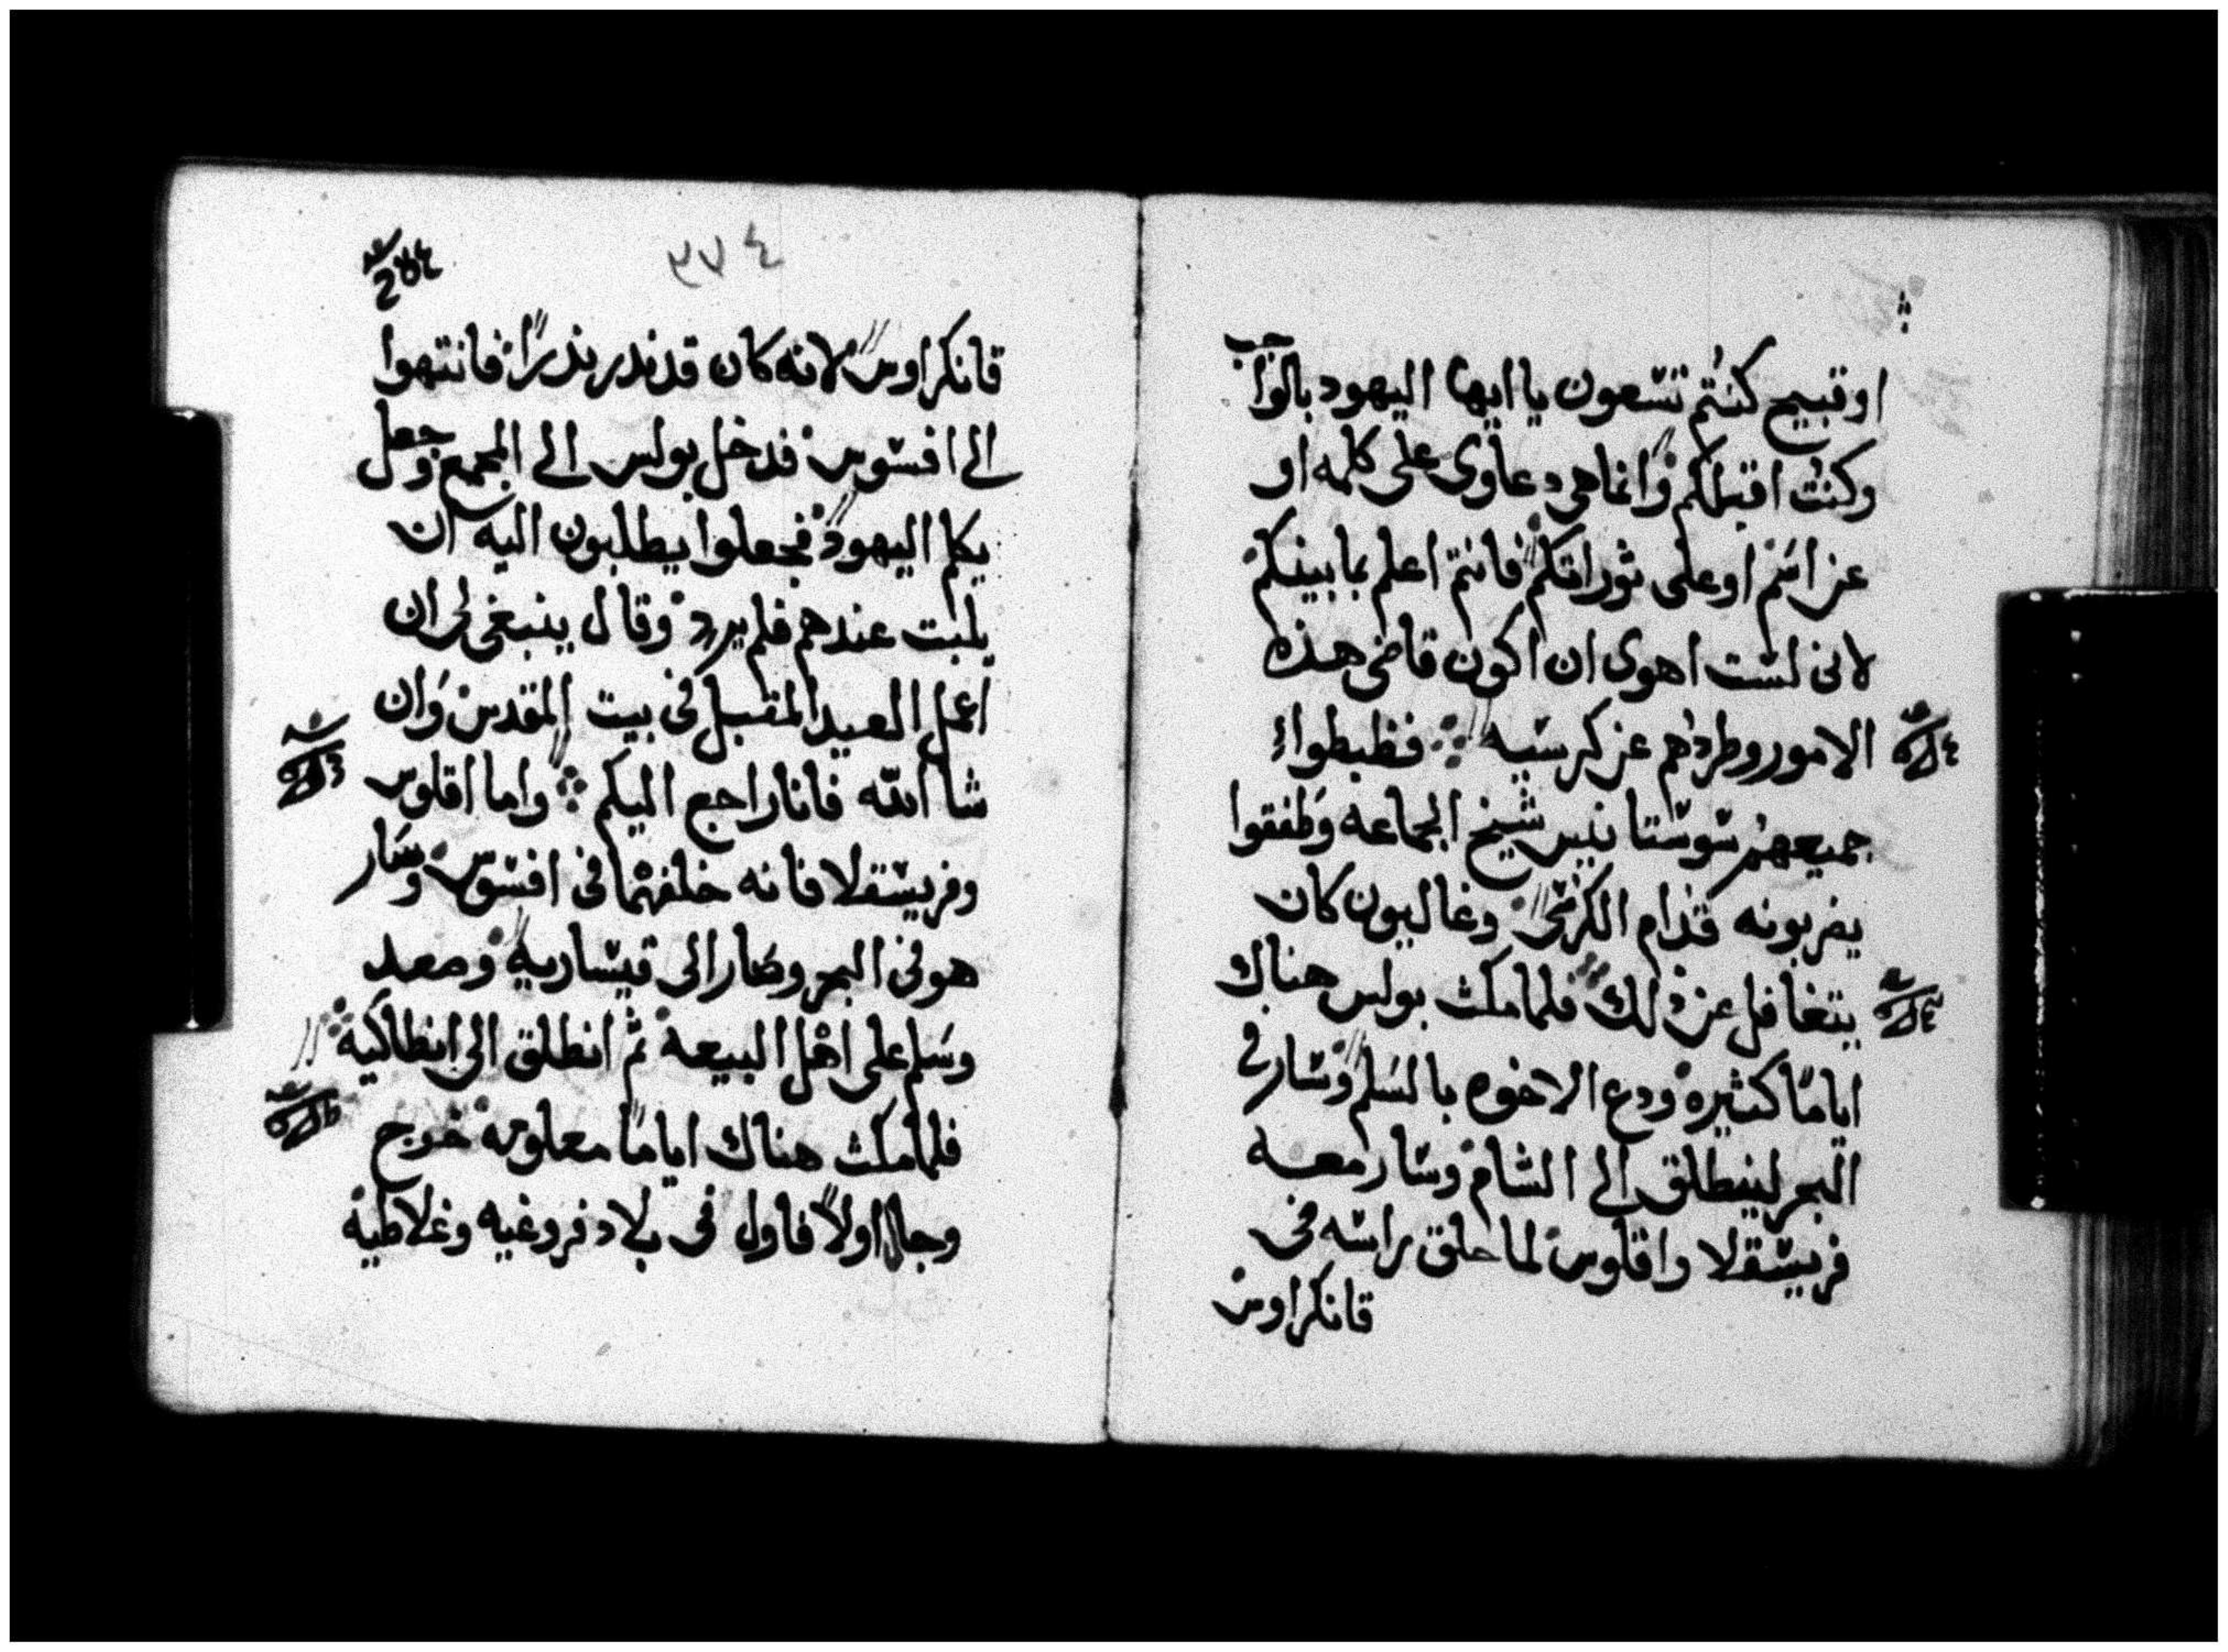 او قبيح كنتم تسعون يا ايها اليهود بالواجب
وكنت اقبلكم وانما هي دعاوي على كلمه او
عن اسم او على توراتكم فانتم اعلم بما بينكم
لاني لست اهوى ان اكون قاضي هذه
الامور وطردهم عن كرسيه فظبطوا
جميعهم سوستانيس شيخ الجماعه وطفقوا
يضربونه قدام الكرسي وغاليون كان
يتغافل عن ذلك فلما مكث بولس هناك
اياما كثيرة ودع الاخوه بالسلم وسار في
البحر لينطلق الى الشام وسار معه
فريسقلا واقلوس لما حلق راسه في
قانكراوس
٣٧٤
قانكراوس لانه كان قد نذر نذرا فانتهوا
الى افسوس فدخل بولس الى المجمع وجعل
يكلم اليهود فجعلوا يطلبون اليه ان
يلبت عندهم فلم يرد وقال ينبغي لي ان
اعمل العيد المقبل في بيت المقدس وان
شا الله فانا راجع اليكم واما اقلوس
وفريسقلا فانه خلفهما في افسوس وسار
هو في البحر وصار الى قيساريه وصعد
وسلم على اهل البيعة ثم انطلق الى انطاكية
فلما مكث هناك اياما معلومه خرج
وجال اولا فاول في بلاد فروغيه وغلاطية